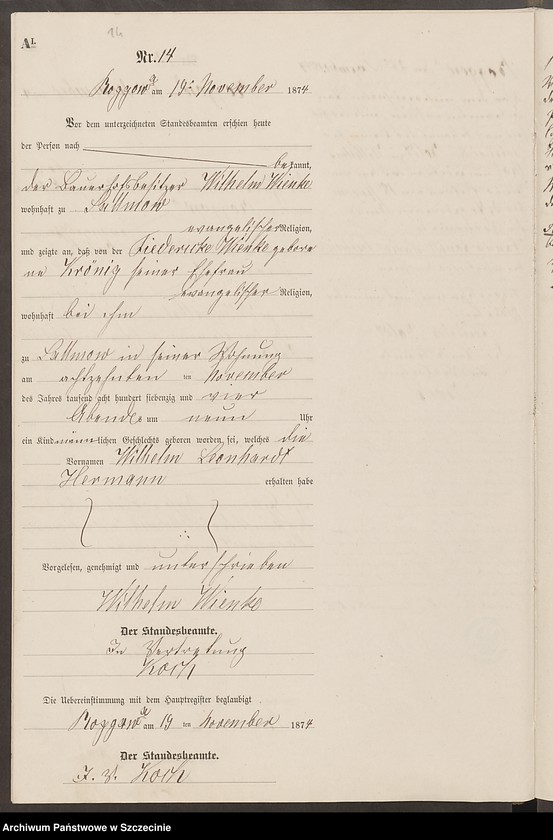 14
A I.
Nr. 14
Roggow am 19t November 1874
Vor dem unterzeichneten Standesbeamten erschien heute
der Person nach
bekannt,
der Bauerhofsbesitzer Wilhelm Wienke
wohnhaft zu Sallmow
evangelischer Religion,
und zeigte an, daß von der Friedericke Wienke gebore
ne Krönig seiner Ehefrau
evangelischer Religion,
wohnhaft bei ihm
zu Sallmow in seiner Wohnung
am achtzehnten ten November
des Jahres tausend acht hundert siebenzig und vier
Abends um neun Uhr
ein Kind männlichen Geschlechts geboren worden sei, welches die
Vornamen Wilhelm Leonhardt
Hermann erhalten habe
Vorgelesen, genehmigt und unterschrieben
Wilhelm Wienke
Der Standesbeamte.
In Vertretung
Koch
Die Uebereinstimmung mit dem Hauptregister beglaubigt
Roggow am 19 ten November 1874
Der Standesbeamte.
I. V. Koch
Archiwum Państwowe w Szczecinie